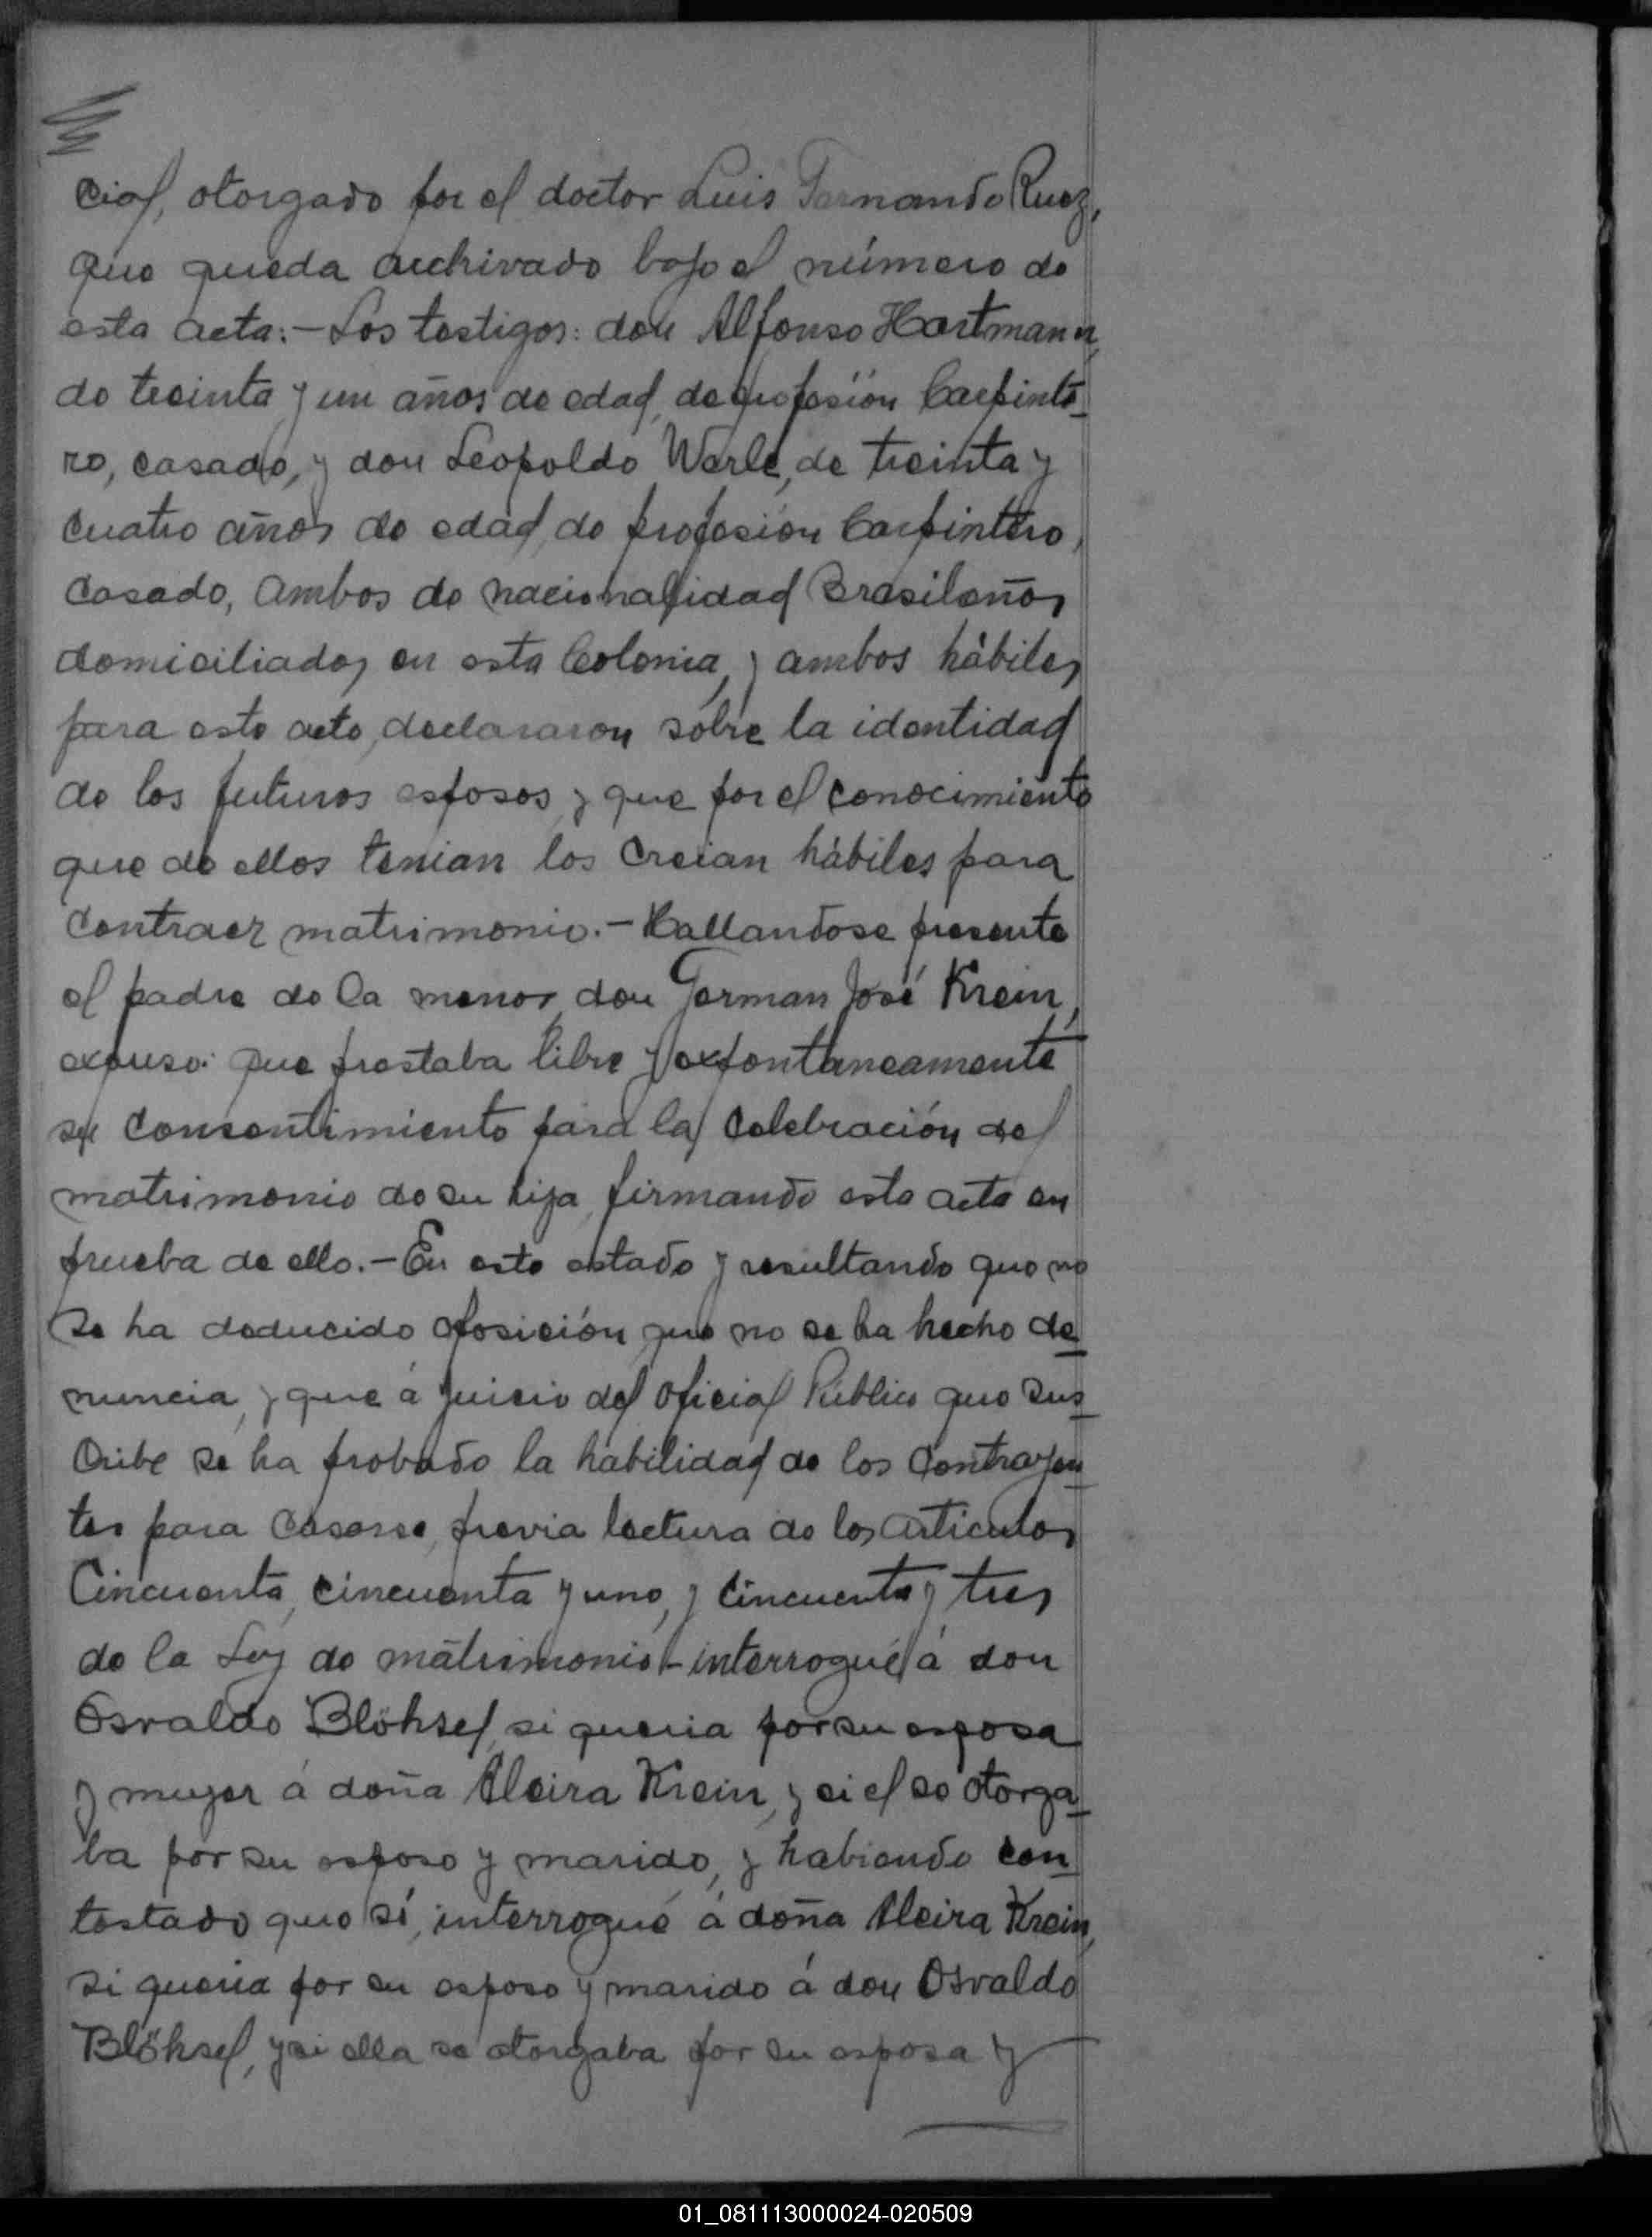 cial, otorgado por el doctor Luis Fernando Ruez,
que queda archivado bajo el número de
esta acta:- Los testigos: don Alfonso Hartmann,
de treinta y un años de edad, de profesión Carpinte-
ro, casado, y don Leopoldo Werle, de treinta y
cuatro años de edad, de profesión Carpintero,
casado, ambos de nacionalidad Brasileños
domiciliados en esta Colonia, y ambos hábiles
para este acto, declararon sobre la identidad
de los futuros esposos, y que por el conocimiento
que de ellos tenian los creian hábiles para
contraer matrimonio.- Hallandose presente
el padre de la menor, don German José Krein,
expuso: que prestaba libre y expontaneamente
su consentimiento para la celebración del
matrimonio de su hija, firmando esta acta en
prueba de ello.- En este estado y resultando que no
se ha deducido oposición, que no se ha hecho de-
nuncia, y que á juicio del Oficial Público que sus-
cribe se ha probado la habilidad de los contrayen-
tes para casarse, previa lectura de los articulos
Cincuenta, cincuenta y uno, y cincuenta y tres
de la Ley de matrimonio - interrogué á don
Osvaldo Blöhsel, si queria por su esposa
y mujer á doña Alcira Krein, y si el se otorga-
ba por su esposo y marido, y habiendo con-
testado que sí, interrogué á doña Alcira Krein,
si queria por su esposo y marido á don Osvaldo
Blöhsel, y si ella se otorgaba por su esposa y
01_081113000024-020509